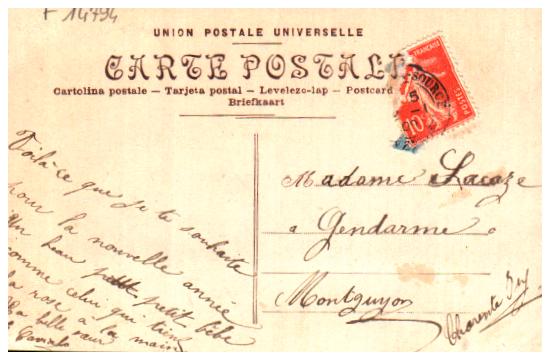 F 14494
UNION POSTALE UNIVERSELLE
CARTE POSTALE
Cartolina postale — Tarjeta postal — Levelezo-lap — Postcard
Briefkaart
FRANÇAISE
POSTES
10
Voilà ce que je te souhaite
pour la nouvelle année
un beau petit bébé
comme celui qui tien
la rose a la main
Ta belle sœur
Madame Lacaze
a Gendarme
Montguyon
Charente Inf